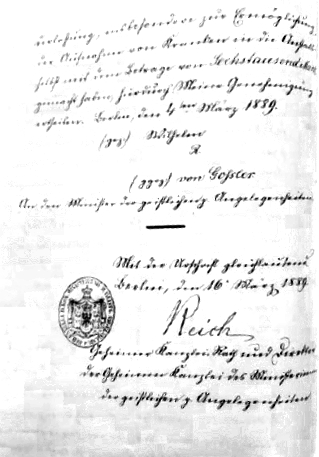 insbesondere zur Ermöglichung
der Aufnahme von Kranken in die Anstalt
selbst mit dem Betrage von Sechstausend Mark
gemacht haben, hierdurch Meine Genehmigung
ertheilen. Berlin, den 4ten März 1889.
(gez) Wilhelm
R.
(ggez) von Goßler
An den Minister der geistlichen p. Angelegenheiten
Mit der Urschrift gleichlautend
Berlin, den 16 März 1889
Reich
Geheimer Kanzlei Rath und Direktor
der Geheimen Kanzlei des Ministeriums
der geistlichen p. Angelegenheiten